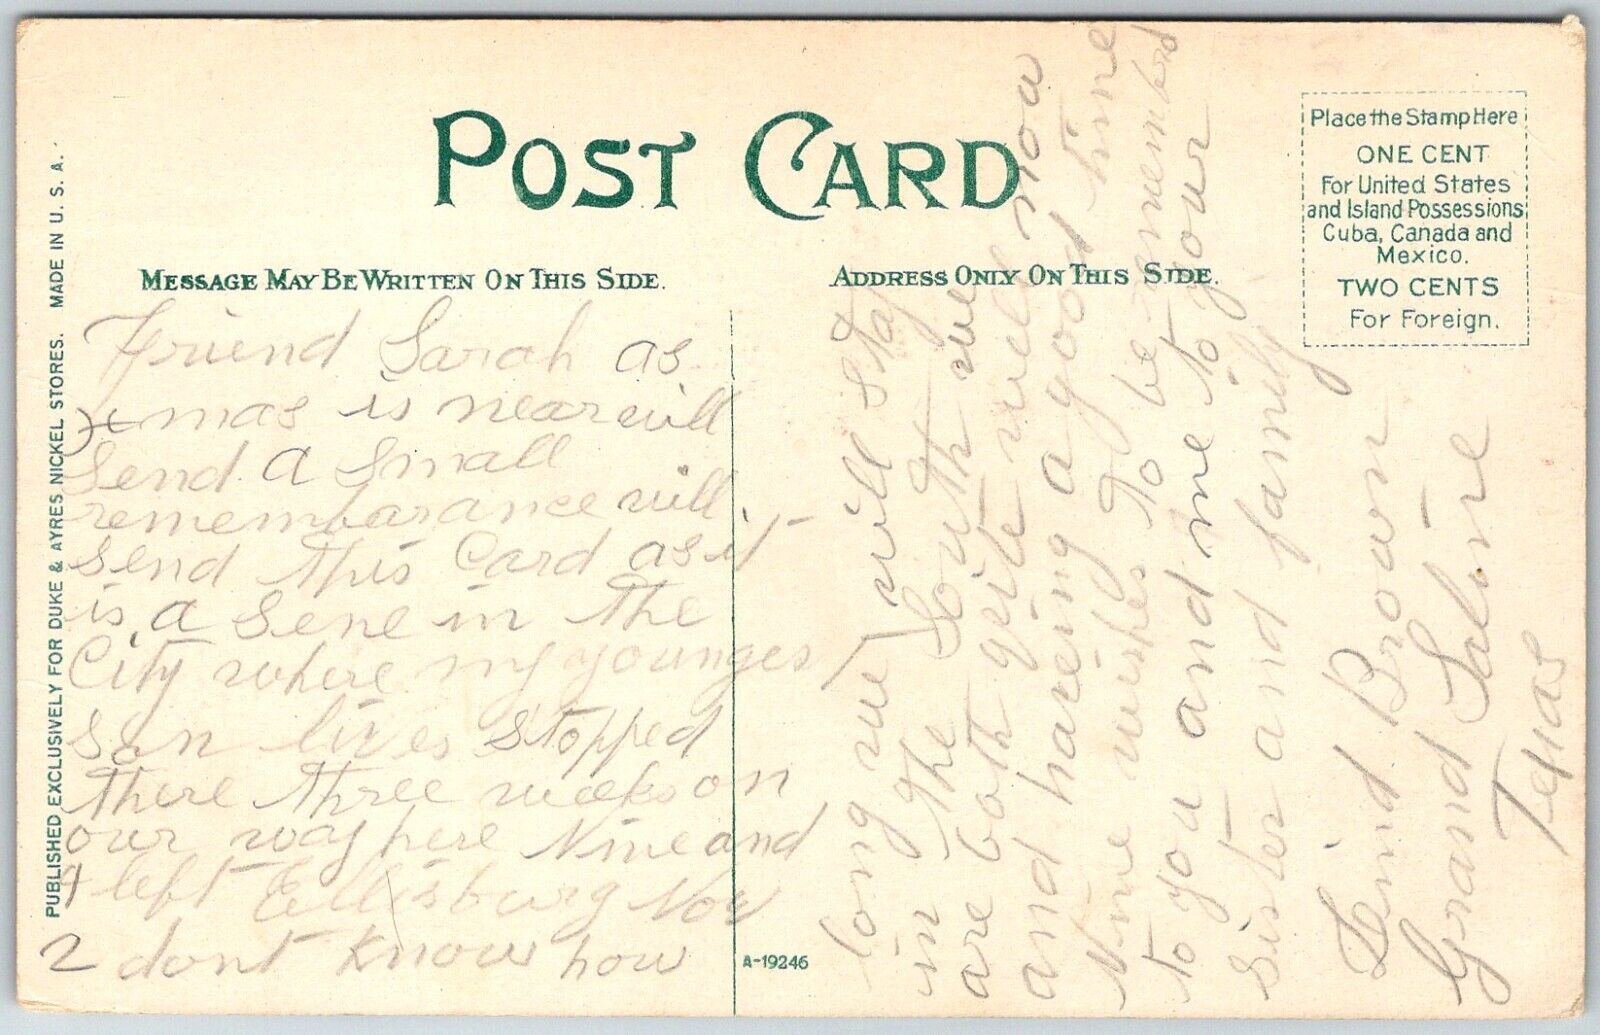 POST CARD
MESSAGE MAY BE WRITTEN ON THIS SIDE.
ADDRESS ONLY ON THIS SIDE.
Place the Stamp Here
ONE CENT
For United States
and Island Possessions
Cuba, Canada and
Mexico.
TWO CENTS
For Foreign.
PUBLISHED EXCLUSIVELY FOR DUKE & AYRES NICKEL STORES. MADE IN U. S. A.
A-19246
Friend Sarah as
xmas is near will
send a small
remembarance will
send this Card as it
is a Sene in the
City where my younges
son lives stopped
there three weeks on
our way here Nine and
I left Ellisburg Nov
2 dont know how
long we will stay
in the South we
are both quite well now
and having a good time
Nine wishes to be remembrd
to you and me to your
sister and family
Brown
Grand Saline
Texas